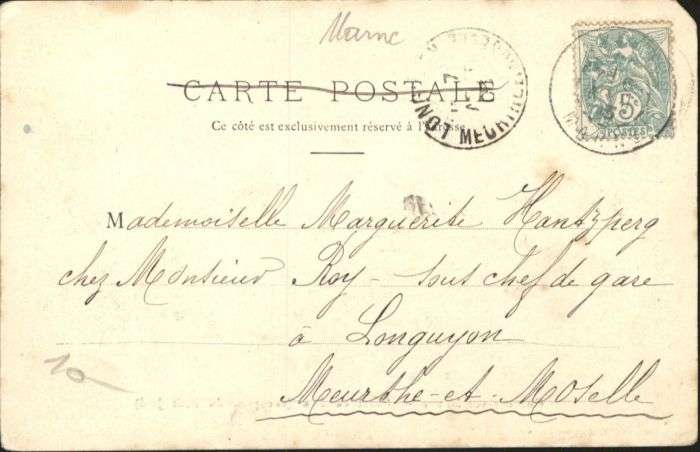 Marne
CARTE POSTALE
Ce côté est exclusivement réservé à l'adresse
5c
POSTES
Mademoiselle Marguerite Hantzperg
chez Monsieur Roy - sous chef de gare
à Longuyon
Meurthe-et-Moselle
10